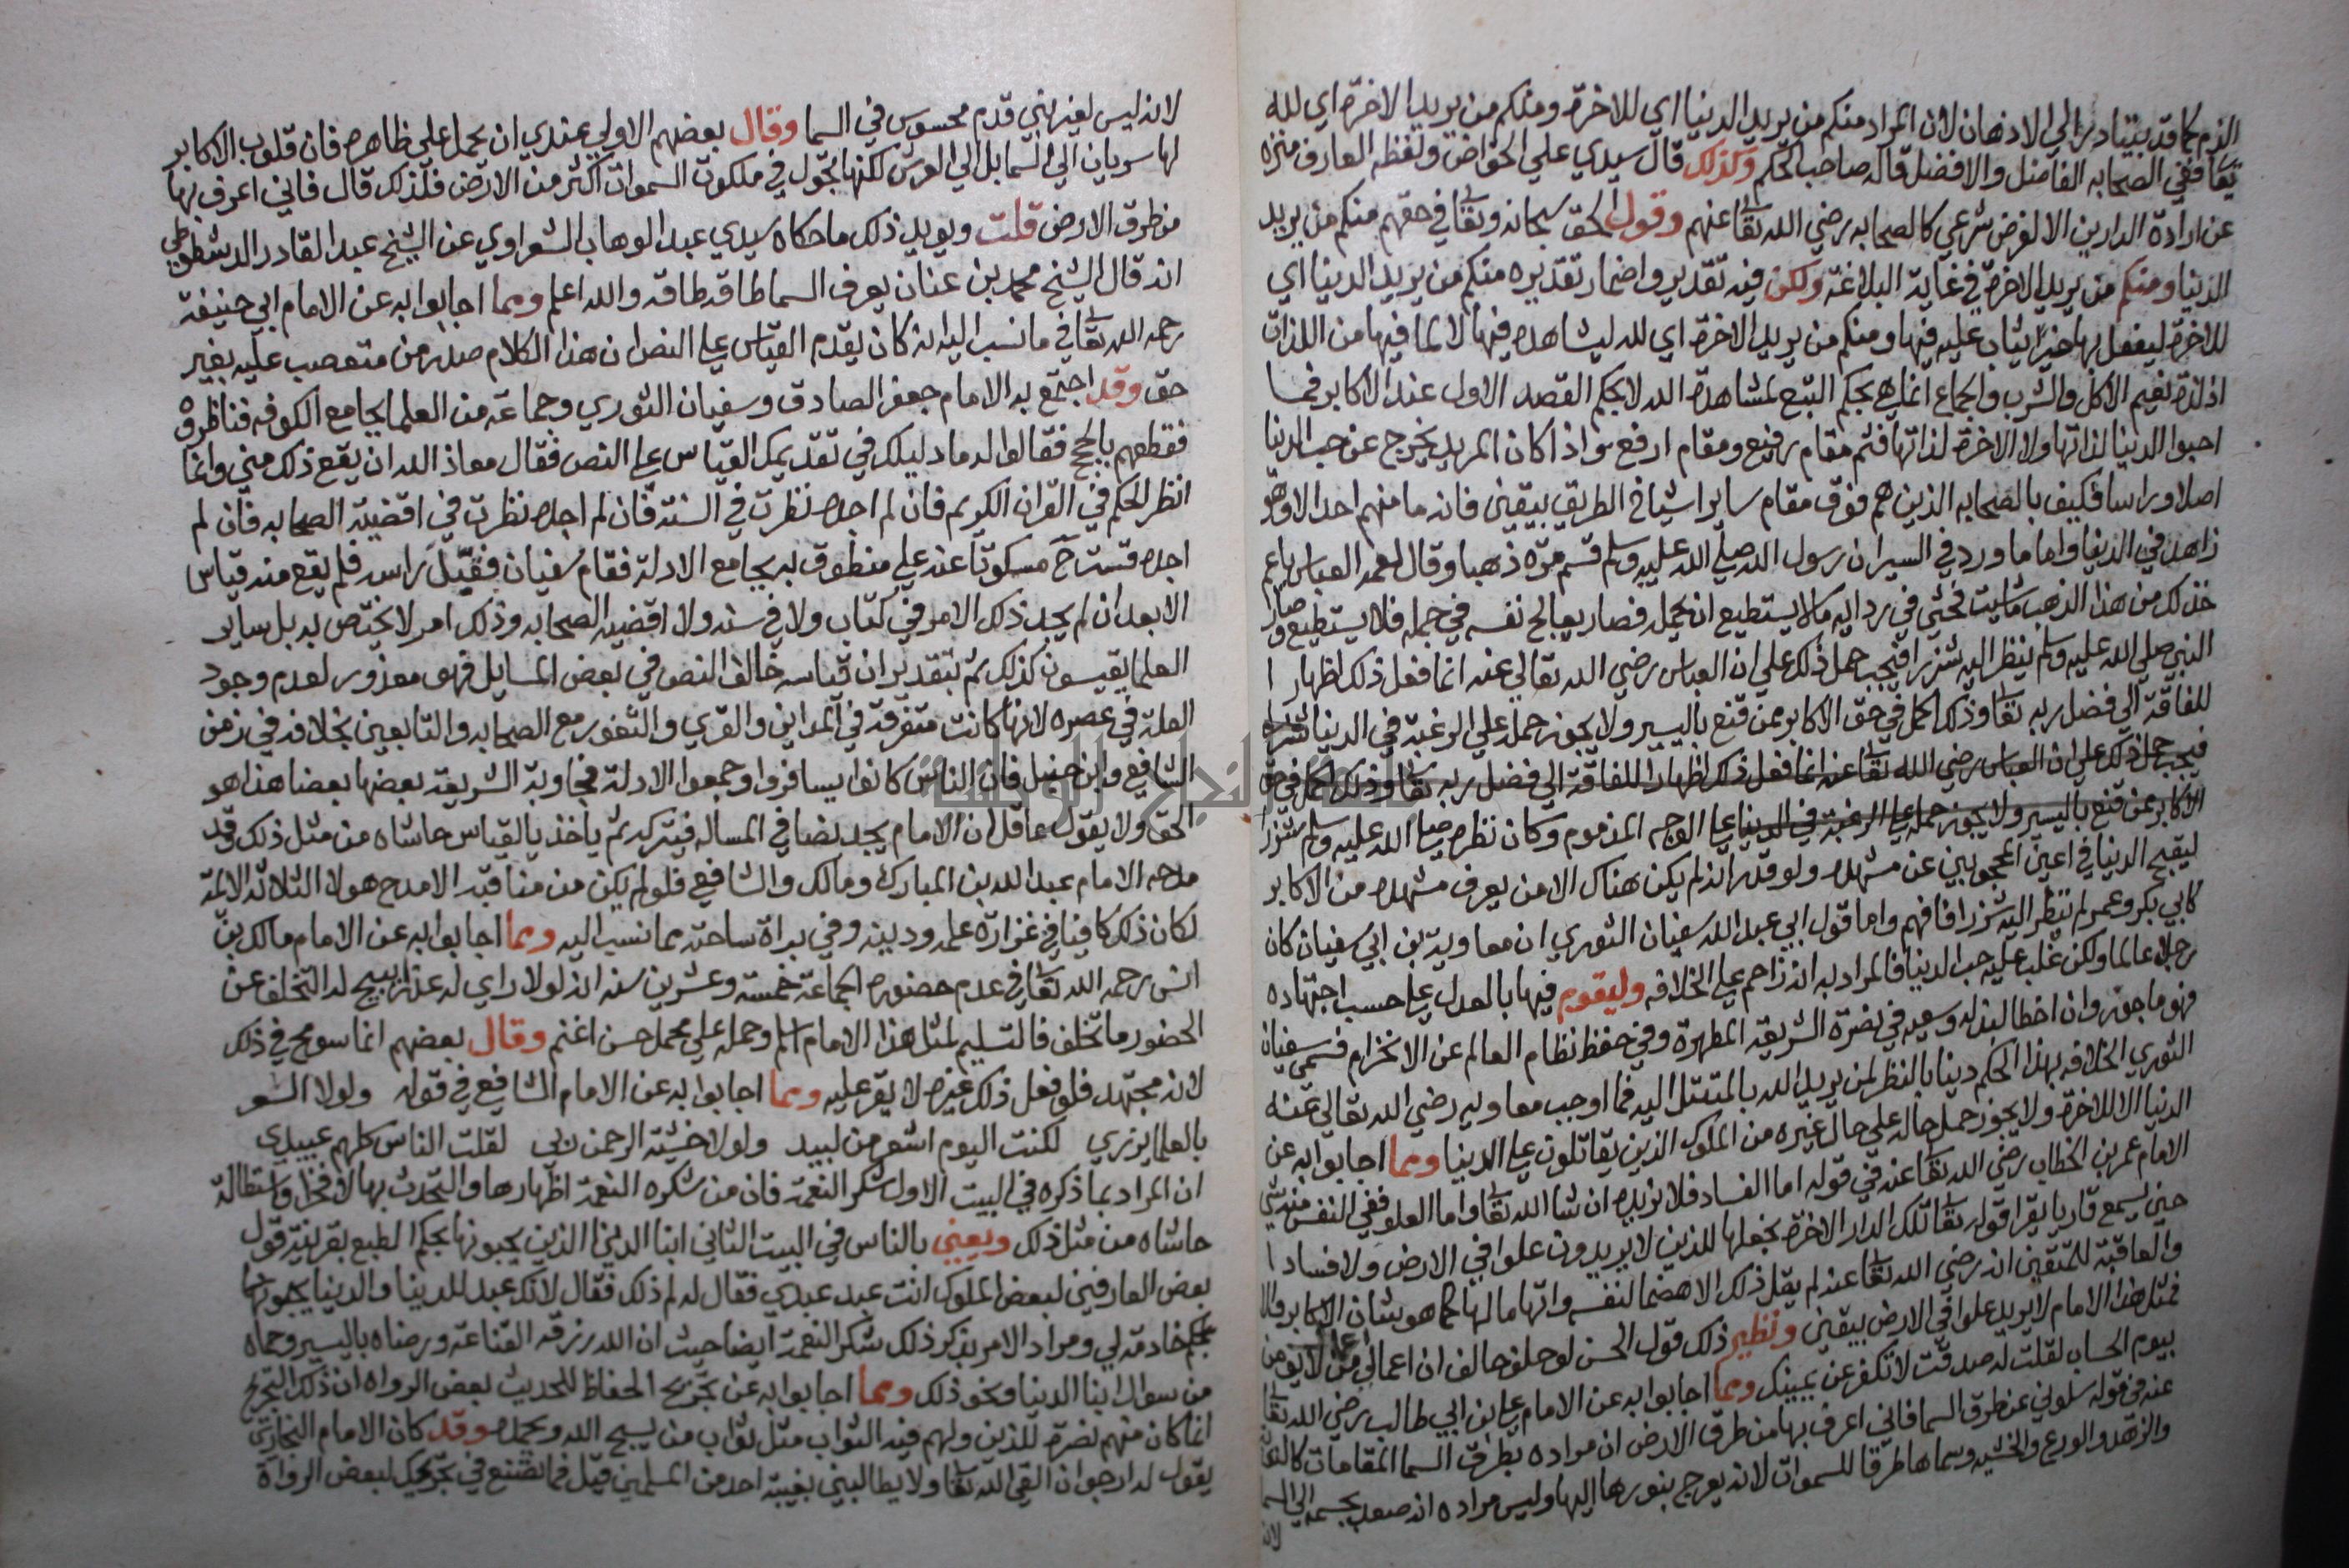 الذم كما قد يتبادر الي الاذهان لان المراد منكم من يريد الدنيا اي للاخرة ومنكم من يريد الاخرة اي لله
تعا ففي الصحابه الفاضل والافضل قاله صاحب الحكم وكذلك قال سيدي علي الخواص ولفظه العارف منزه
عن ارادة الدارين الا لغرض شرعي كالصحابه رضي الله تعا عنهم وقول الحق سبحانه وتعا في حقهم منكم من يريد
الدنيا ومنكم من يريد الاخرة في غاية البلاغة ولكن فيه تقدير واضمار تقديره منكم من يريد الدنيا اي
للاخرة ليفعل بها خيرا يثاب عليه فيها ومنكم من يريد الاخرة اي لله ليشاهده فيها لا لما فيها من اللذات
اذ لذة نعيم الاكل والشرب والجماع انما هي بحكم التبع لمشاهدة الله لا بحكم القصد الاول عند الاكابر فما
احبوا الدنيا لذاتها ولا الاخرة لذاتها فثم مقام رفيع ومقام ارفع سوا اذا كان المريد يخرج عن حب الدنيا
اصلا وراسا فكيف بالصحابه الذين هم فوق مقام ساير اشياخ الطريق بيقين فانه ما منهم احد الا وهو
زاهد في الدنيا واما ما ورد في السير ان رسول الله صلي الله عليه وسلم قسم مرة ذهبا وقال لعمه العباس يا عم
خذ لك من هذا الذهب ما شيت فحثي في ردايه ما لا يستطيع ان يحمله فصار يعالج نفسه في حمله فلا يستطيع وصار
النبي صلي الله عليه وسلم ينظر اليه شزرا فيجب حمل ذلك علي ان العباس رضي الله تعالي عنه انما فعل ذلك اظهارا
للفاقة الي فضل ربه تعا وذلك اكمل في حق الاكابر ممن قنع باليسير ولا يجوز حمله علي الرغبة في الدنيا
فيجب حمل ذلك علي ان العباس رضي الله تعا عنه انما فعل ذلك اظهارا للفاقة الي فضل ربه تعا وذلك اكمل في حق
الاكابر ممن قنع باليسير ولا يجوز حمله علي الرغبة في الدنيا علي الوجه المذموم وكان نظره صلي الله عليه وسلم شزرا
ليقبح الدنيا في اعين المحجوبين عن مشهده ولو قدر انه لم يكن هناك الا من يعرف مشهده من الاكابر
كابي بكر وعمر لم ينظر اليه شزرا فافهم واما قول ابي عبد الله سفيان الثوري ان معاوية بن ابي سفيان كان
رجلا عالما ولكن غلب عليه حب الدنيا فالمراد به انه زاحم علي الخلافه وليقوم فيها بالعدل علي حسب اجتهاده
فهو ماجور وان اخطا لبذله وسعه في نصرة الشريعة المطهرة وفي حفظ نظام العالم عن الانخرام فسمي سفيان
الثوري الخلافه بهذا الحكم دينا بالنظر لمن يريد الله بالمتمثل اليه فما اوجب معاويه رضي الله تعالي عنه
الدنيا الا للاخرة ولا يجوز حمل حاله علي حال غيره من الملوك الذين يقاتلون علي الدنيا ومما اجابوا به عن
الامام عمر بن الخطاب رضي الله تعا عنه في قوله اما الفساد فلا نريده ان شا الله تعا واما العلو ففي النفس منه شي
حين يسمع قاريا يقرا قوله تعا تلك الدار الاخرة نجعلها للذين لا يريدون علوا في الارض ولا فسادا
والعاقبة للمتقين انه رضي الله تعا عنه لم يقل ذلك الا هضما لنفسه واتهاما لها كما هو شان الاكابر والا
فمثل هذا الامام لا يريد علوا في الارض بيقين ونظير ذلك قول الحسن لو حلف حالف ان اعمالي من لا يومن
بيوم الحساب لقلت له صدقت لا تكفر عن يمينك ومما اجابوا به عن الامام علي ابن ابي طالب رضي الله تعا
عنه في قوله سلوني عن طرق السما فاني اعرف بها من طرق الارض ان مراده بطرق السما المقامات كالتوبة
والزهد والورع والخشيه وسماها طرقا للسموات لانه يعرج بنورها اليها وليس مراده انه صعد بجسمه الي السما
لانه
لانه ليس لغير نبي قدم محسوس في السما وقال بعضهم الاولي عندي ان يحمل علي ظاهره فان قلوب الاكابر
لها سريان الي السما بل الي العرش لكنها تجول في ملكوت السموات اكثر من الارض فلذلك قال فاني اعرف بها
من طرق الارض قلت ويويد ذلك ما حكاه سيدي عبد الوهاب الشعراوي عن الشيخ عبد القادر الدشطوطي
انه قال الشيخ محمد بن عنان يعرف السما طاقه طاقه والله اعلم ومما اجابوا به عن الامام ابي حنيفة
رحمه الله تعا في ما نسب اليه انه كان يقدم القياس علي النص ان هذا الكلام صدر من متعصب عليه بغير
حق وقد اجتمع به الامام جعفر الصادق وسفيان الثوري وجماعة من العلما بجامع الكوفه فناظروه
فقطعهم بالحجج فقالوا له ما دليلك في تقديمك القياس علي النص فقال معاذ الله ان يقع ذلك مني وانما
انظر الحكم في القران الكريم فان لم اجده نظرت في السنة فان لم اجده نظرت في اقضية الصحابه فان لم
اجده قست ح مسكوتا عنه علي منطوق به بجامع الادلة فقام سفيان فقبل راسه فلم يقع منه قياس
الا بعد ان لم يجد ذلك الامر في كتاب ولا في سنه ولا اقضية الصحابه وذلك امر لا يختص به بل ساير
العلما يقيسون كذلك ثم بتقدير ان قياسه خالف النص في بعض المسايل فهو معذور لعدم وجود
العلة في عصره لانها كانت متفرقة في المداين والقري والثغور مع الصحابه والتابعين بخلافه في زمن
الشافعي وابن حنبل فان الناس كانوا يسافروا وجمعوا الادلة فجاوبة الشريعة بعضها بعضا هذا هو
الحق ولا يقول عاقل ان الامام يجد نصا في المساله فيتركه ثم ياخذ بالقياس حاشاه من مثل ذلك قد
مدحه الامام عبد الله بن المبارك ومالك والشافعي فلو لم يكن من مناقبه الا مدح هولا الثلاثه الائمة
لكان ذلك كافيا في غزارة علمه ودينه وفي براة ساحته مما نسب اليه ومما اجابوا به عن الامام مالك بن
انس رحمه الله تعا في عدم حضوره الجماعة خمسة وعشرين سنه انه لولا راي له عذرا يبيح له التخلف عن
الحضور ما تخلف فالتسليم لمثل هذا الامام اسلم وحمله علي محمل حسن اغنم وقال بعضهم انما سومح في ذلك
لانه مجتهد فلو فعل ذلك غيره لا يقر عليه ومما اجابوا به عن الامام الشافعي في قوله ولولا الشعر
بالعلما يزري لكنت اليوم اشعر من لبيد ولولا خشية الرحمن ربي لقلت الناس كلهم عبيدي
ان المراد بما ذكره في البيت الاول شكر النعمة فان من شكره النعمة اظهارها والتحدث بها لا فخرا واستطالة
حاشاه من مثل ذلك ويعني بالناس في البيت الثاني ابنا الدنيا الذين يحبونها بحكم الطبع بقرينة قول
بعض العارفين لبعض الملوك انت عبد عبدي فقال له لم ذلك فقال لانك عبد للدنيا والدنيا
خادمة لي ومراد الامر بذكر ذلك شكر النعمة ايضا حيث ان الله رزقه القناعة ورضاه باليسير وحماه
من سوال ابنا الدنيا ونحو ذلك ومما اجابوا به عن تجريح الحفاظ للحديث بعض الرواه ان ذلك التجريح
انما كان منهم نصرة للدين ولهم فيه الثواب مثل ثواب من يسبح الله ويحمده وقد كان الامام البخاري
يقول له ارجو ان القي الله تعا ولا يطالبني بغيبة احد من المسلمين قيل فما تصنع في تجريحك لبعض الرواة